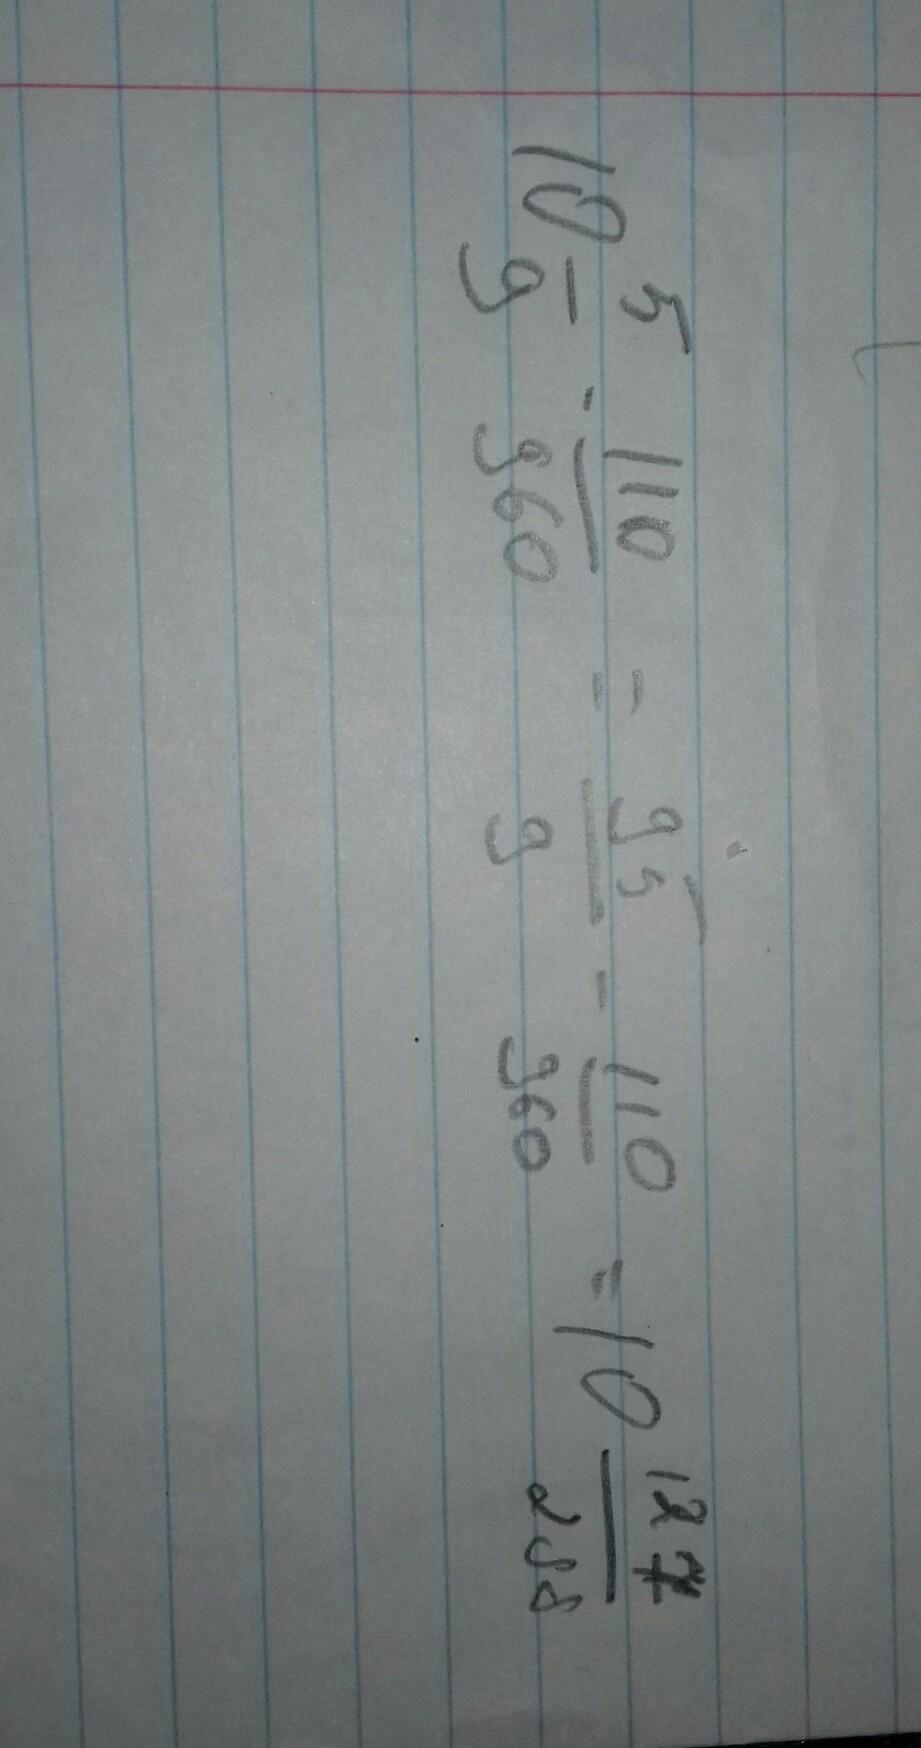 10 5/9 - 110/960 = 95/9 - 110/960 = 10 127/288